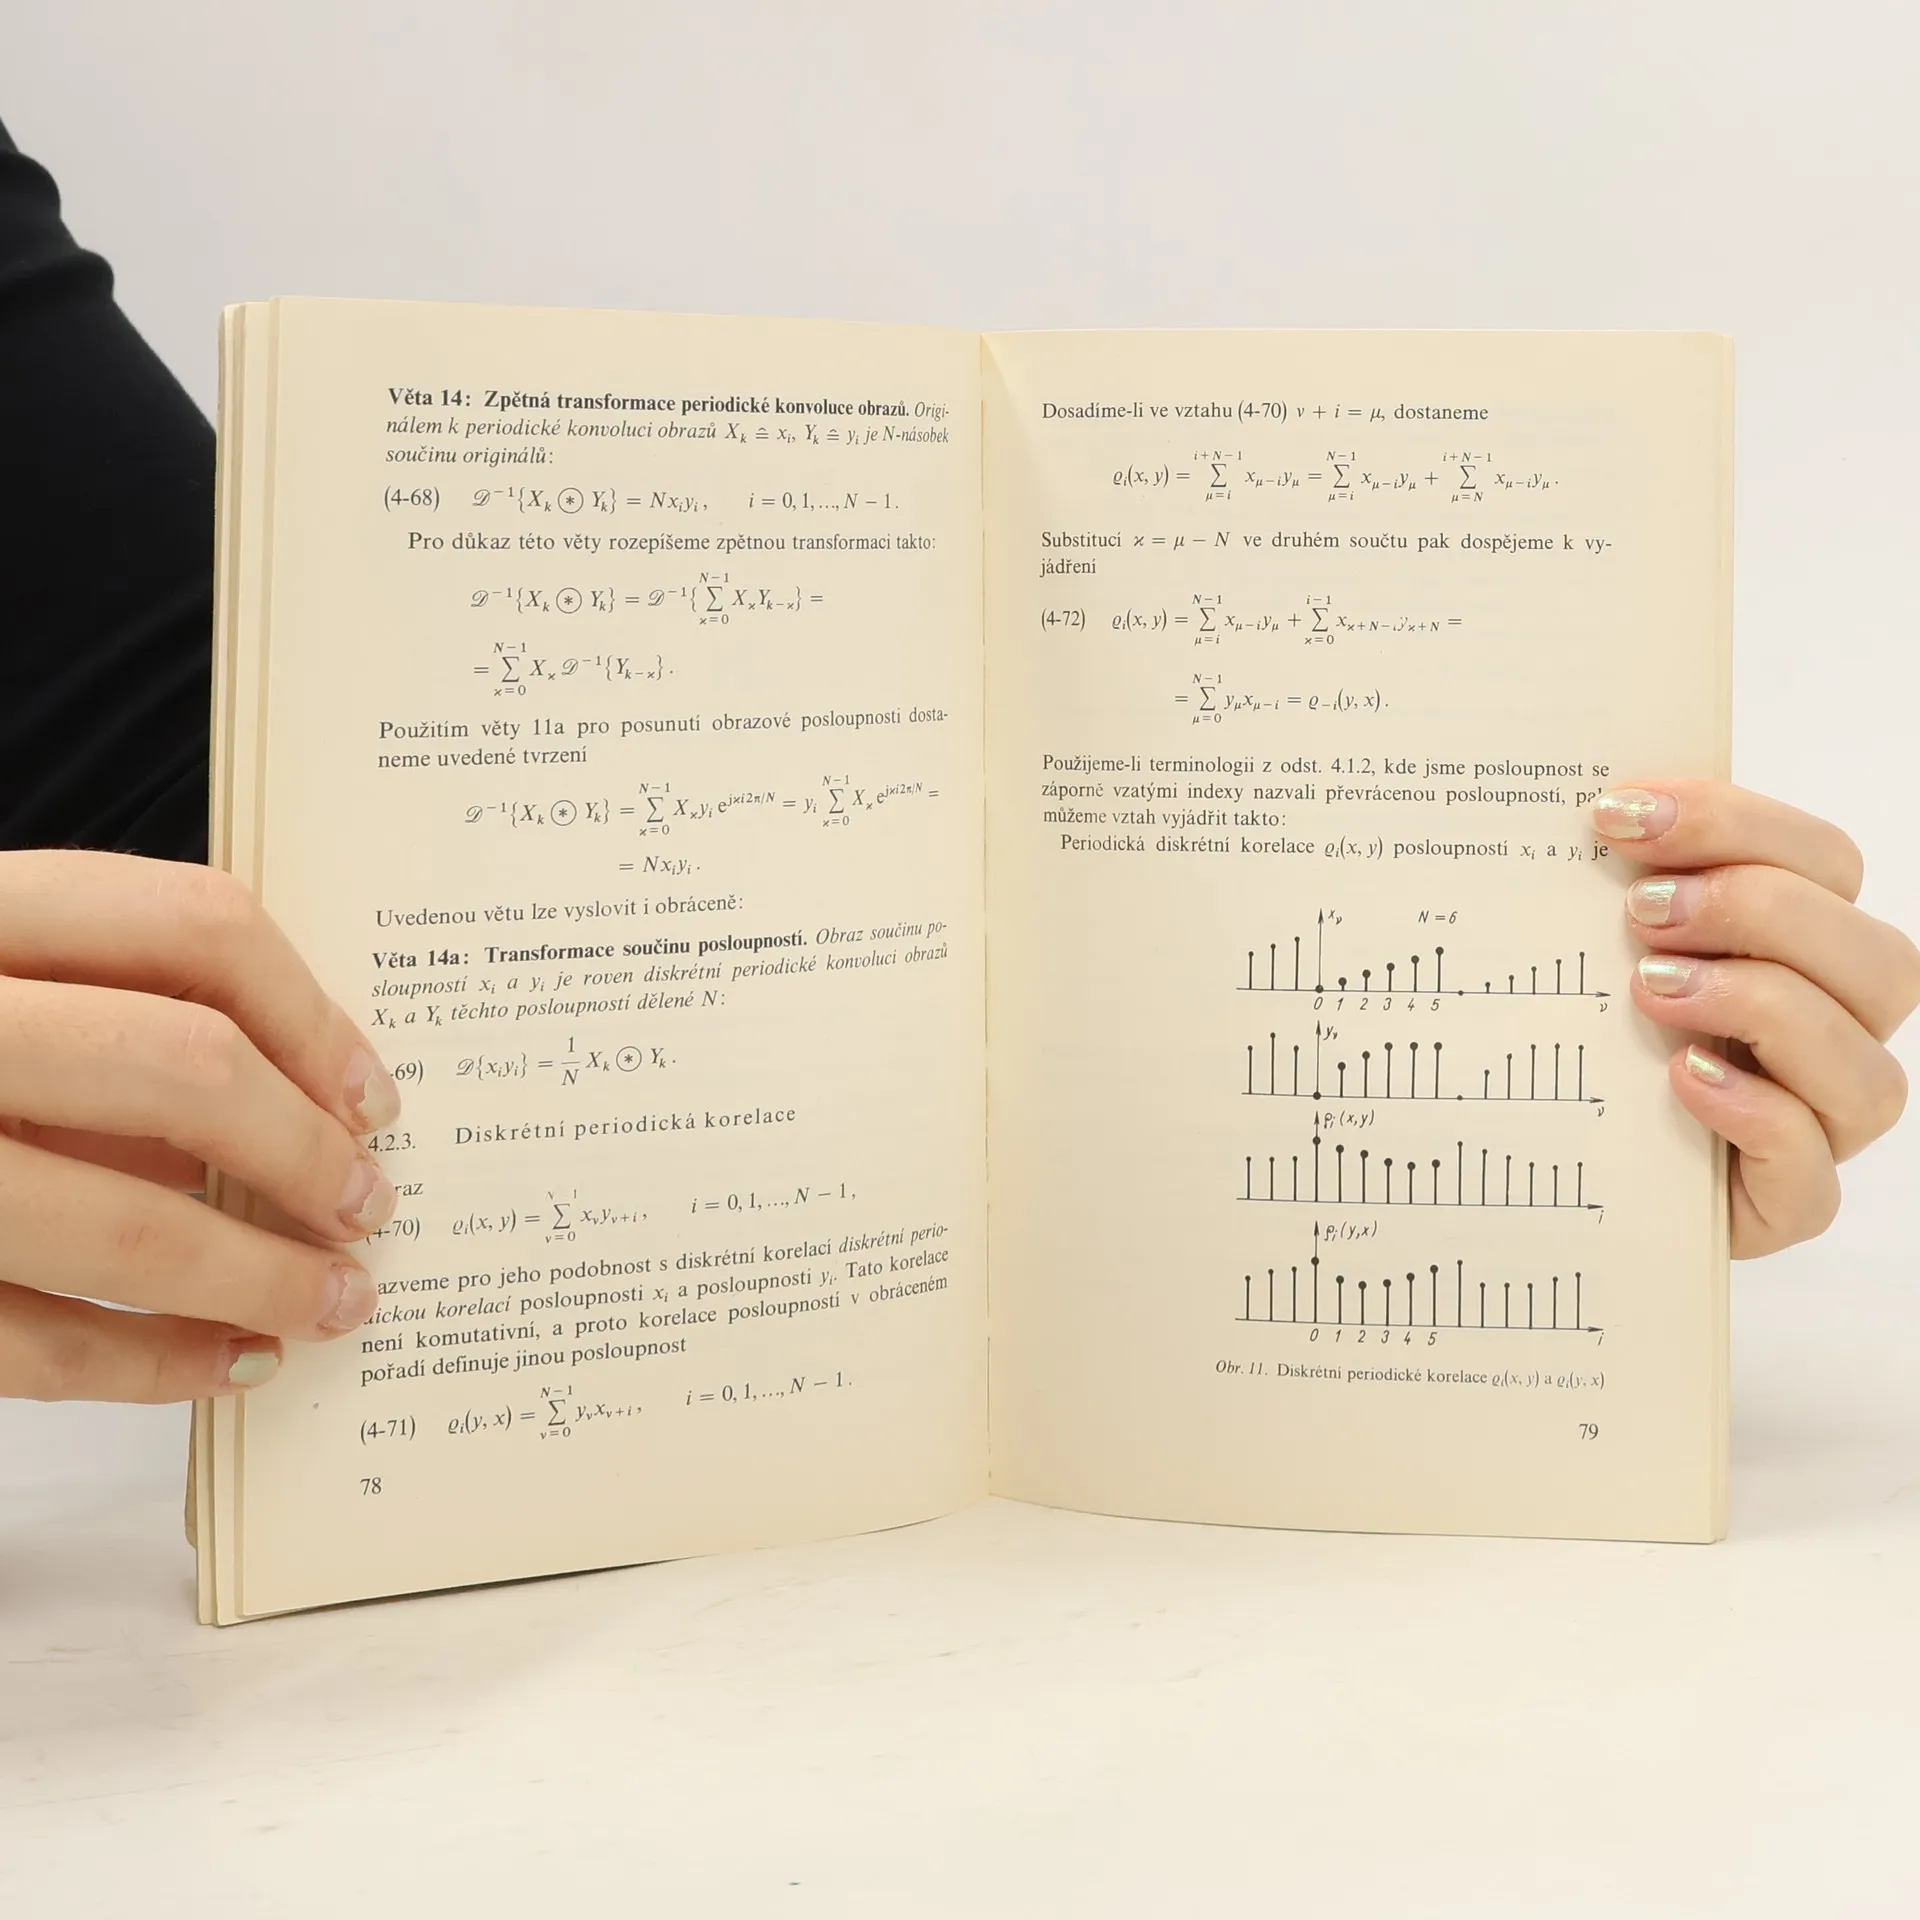 Věta 14: Zpětná transformace periodické konvoluce obrazů. Origi-
nálem k periodické konvoluci obrazů X_k ≙ x_i, Y_k ≙ y_i je N-násobek
součinu originálů:
(4-68) 𝒟⁻¹{X_k ⊛ Y_k} = Nx_iy_i, i = 0, 1, ..., N − 1.
Pro důkaz této věty rozepíšeme zpětnou transformaci takto:
𝒟⁻¹{X_k ⊛ Y_k} = 𝒟⁻¹{∑_{ϰ=0}^{N−1} X_ϰY_{k−ϰ}} =
= ∑_{ϰ=0}^{N−1} X_ϰ 𝒟⁻¹{Y_{k−ϰ}}.
Použitím věty 11a pro posunutí obrazové posloupnosti dosta-
neme uvedené tvrzení
𝒟⁻¹{X_k ⊛ Y_k} = ∑_{ϰ=0}^{N−1} X_ϰy_i e^{jϰi2π/N} = y_i ∑_{ϰ=0}^{N−1} X_ϰ e^{jϰi2π/N} =
= Nx_iy_i.
Uvedenou větu lze vyslovit i obráceně:
Věta 14a: Transformace součinu posloupností. Obraz součinu po-
sloupností x_i a y_i je roven diskrétní periodické konvoluci obrazů
X_k a Y_k těchto posloupností dělené N:
-69) 𝒟{x_iy_i} = 1/N X_k ⊛ Y_k.
4.2.3. Diskrétní periodická korelace
raz
4-70) ϱ_i(x, y) = ∑_{ν=0}^{N−1} x_νy_{ν+i}, i = 0, 1, ..., N − 1,
azveme pro jeho podobnost s diskrétní korelací diskrétní perio-
dickou korelací posloupnosti x_i a posloupnosti y_i. Tato korelace
není komutativní, a proto korelace posloupností v obráceném
pořadí definuje jinou posloupnost
(4-71) ϱ_i(y, x) = ∑_{ν=0}^{N−1} y_νx_{ν+i}, i = 0, 1, ..., N − 1.
78
Dosadíme-li ve vztahu (4-70) ν + i = μ, dostaneme
ϱ_i(x, y) = ∑_{μ=i}^{i+N−1} x_{μ−i}y_μ = ∑_{μ=i}^{N−1} x_{μ−i}y_μ + ∑_{μ=N}^{i+N−1} x_{μ−i}y_μ.
Substitucí ϰ = μ − N ve druhém součtu pak dospějeme k vy-
jádření
(4-72) ϱ_i(x, y) = ∑_{μ=i}^{N−1} x_{μ−i}y_μ + ∑_{ϰ=0}^{i−1} x_{ϰ+N−i}y_{ϰ+N} =
= ∑_{μ=0}^{N−1} y_μx_{μ−i} = ϱ_{−i}(y, x).
Použijeme-li terminologii z odst. 4.1.2, kde jsme posloupnost se
záporně vzatými indexy nazvali převrácenou posloupností, pak
můžeme vztah vyjádřit takto:
Periodická diskrétní korelace ϱ_i(x, y) posloupností x_i a y_i je
x_ν N = 6
0 1 2 3 4 5 ν
y_ν
ν
ϱ_i(x,y)
i
ϱ_i(y,x)
0 1 2 3 4 5 i
Obr. 11. Diskrétní periodické korelace ϱ_i(x, y) a ϱ_i(y, x)
79